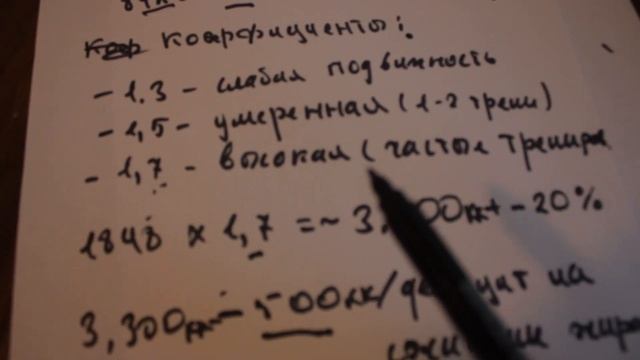 коэффициенты:
- 1.3 - слабая подвижность
- 1,5 - умеренная (1-2 трени)
- 1,7 - высокая (частые трениро
1848 x 1,7 = ~ 3, 00кк - 20%
3,300кк - 500кк/ на
жира